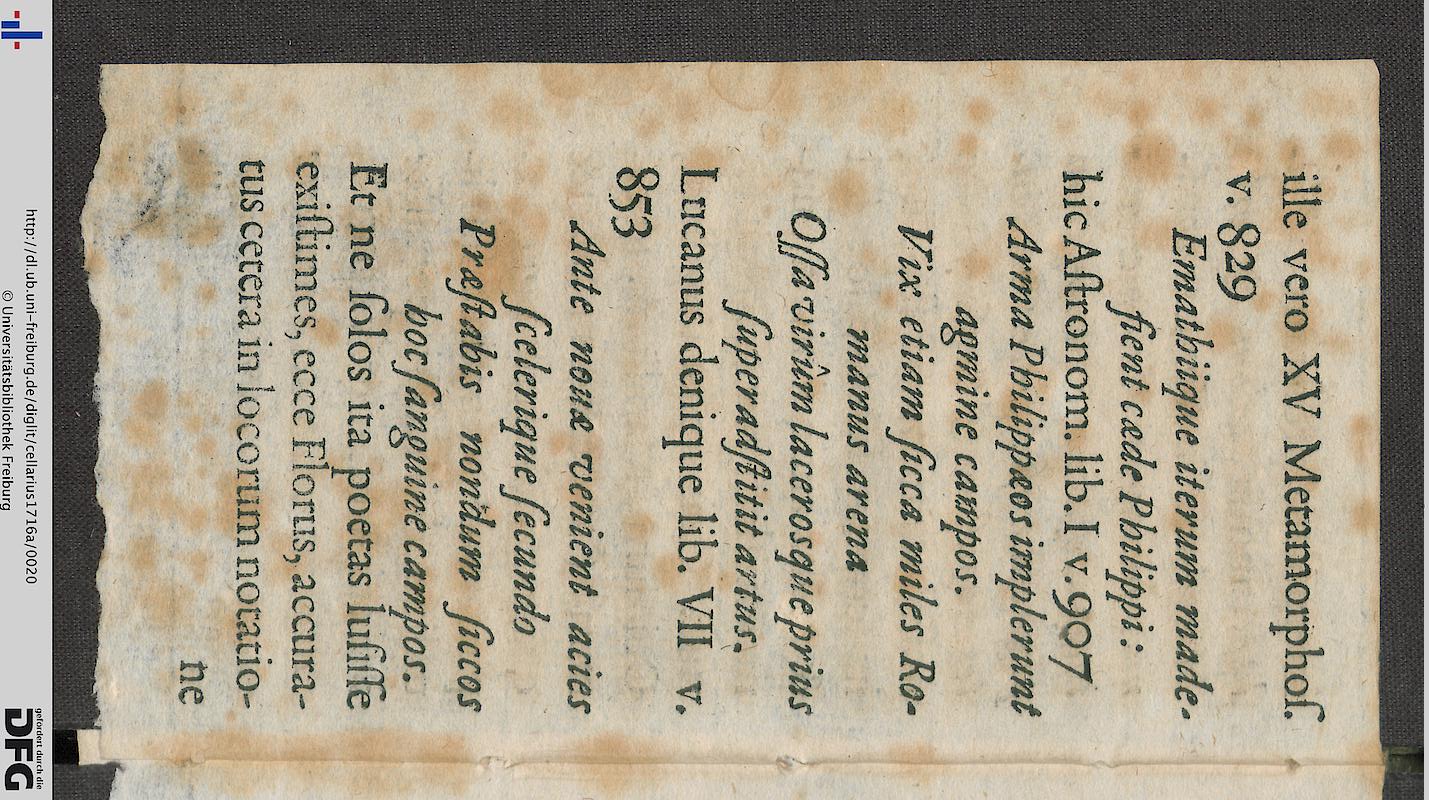 ille vero XV Metamorphoſ.
v. 829
Emathiique iterum made-
fient cæde Philippi:
hic Aſtronom. lib. I v. 907
Arma Philippæos implerunt
agmine campos.
Vix etiam ſicca miles Ro-
manus arena
Oſſa virûm lacerosque prius
ſuperadſtitit artus.
Lucanus denique lib. VII v.
853
Ante novæ venient acies
ſcelerique ſecundo
Præſtabis nondum ſiccos
hoc ſanguine campos.
Et ne ſolos ita poetas luſiſſe
exiſtimes, ecce Florus, accura-
tus cetera in locorum notatio-
ne
http://dl.ub.uni-freiburg.de/diglit/cellarius1716a/0020
© Universitätsbibliothek Freiburg
gefördert durch die
DFG